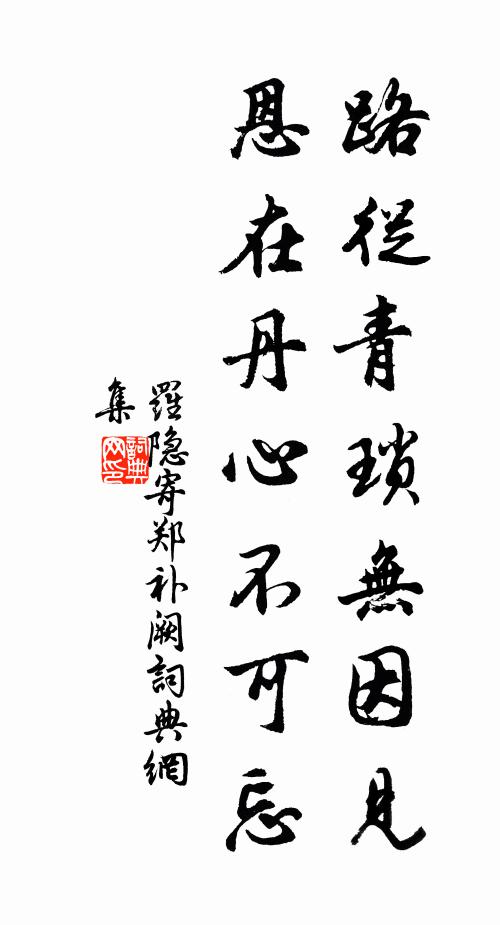 路從青瑣無因見
恩在丹心不可忘
羅隐寄郑补阙詞典網
集
詞典网印